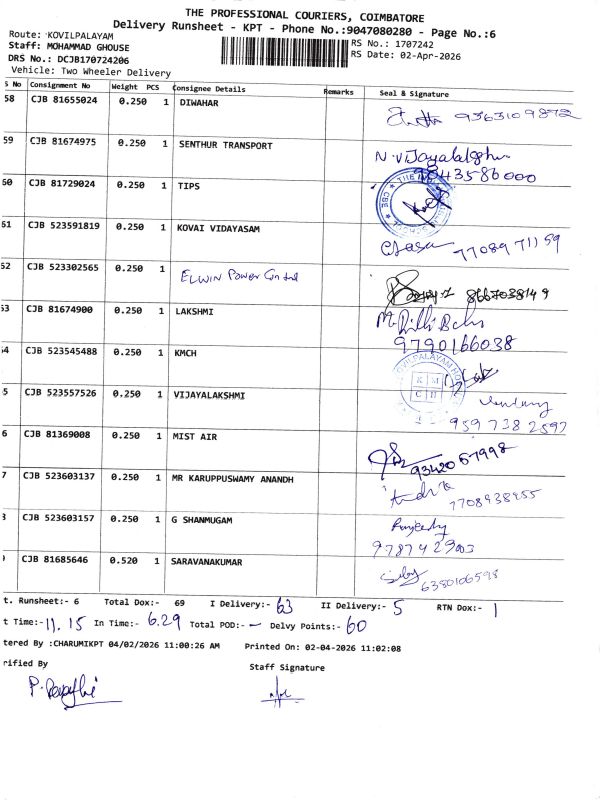 THE PROFESSIONAL COURIERS, COIMBATORE
Delivery Runsheet - KPT - Phone No.:9047080280 - Page No.:6
Route: KOVILPALAYAM
RS No.: 1707242
Staff: MOHAMMAD GHOUSE
RS Date: 02-Apr-2026
DRS No.: DCJB170724206
Vehicle: Two Wheeler Delivery
S No Consignment No Weight PCS Consignee Details Remarks Seal & Signature
58 CJB 81655024 0.250 1 DIWAHAR 9363109872
59 CJB 81674975 0.250 1 SENTHUR TRANSPORT N. Vijayalakshmi 9043586000
60 CJB 81729024 0.250 1 TIPS
61 CJB 523591819 0.250 1 KOVAI VIDAYASAM 7708971159
52 CJB 523302565 0.250 1 ELWIN Power Control 8667038149
53 CJB 81674900 0.250 1 LAKSHMI 9790166038
54 CJB 523545488 0.250 1 KMCH
5 CJB 523557526 0.250 1 VIJAYALAKSHMI 959 738 2597
6 CJB 81369008 0.250 1 MIST AIR 9342067998
7 CJB 523603137 0.250 1 MR KARUPPUSWAMY ANANDH 7708938455
3 CJB 523603157 0.250 1 G SHANMUGAM 9787429003
CJB 81685646 0.520 1 SARAVANAKUMAR 6380106598
t. Runsheet:- 6 Total Dox:- 69 I Delivery:- 63 II Delivery:- 5 RTN Dox:- 1
t Time:- 11.15 In Time:- 6.29 Total POD:- – Delvy Points:- 60
tered By :CHARUMIKPT 04/02/2026 11:00:26 AM Printed On: 02-04-2026 11:02:08
rified By Staff Signature